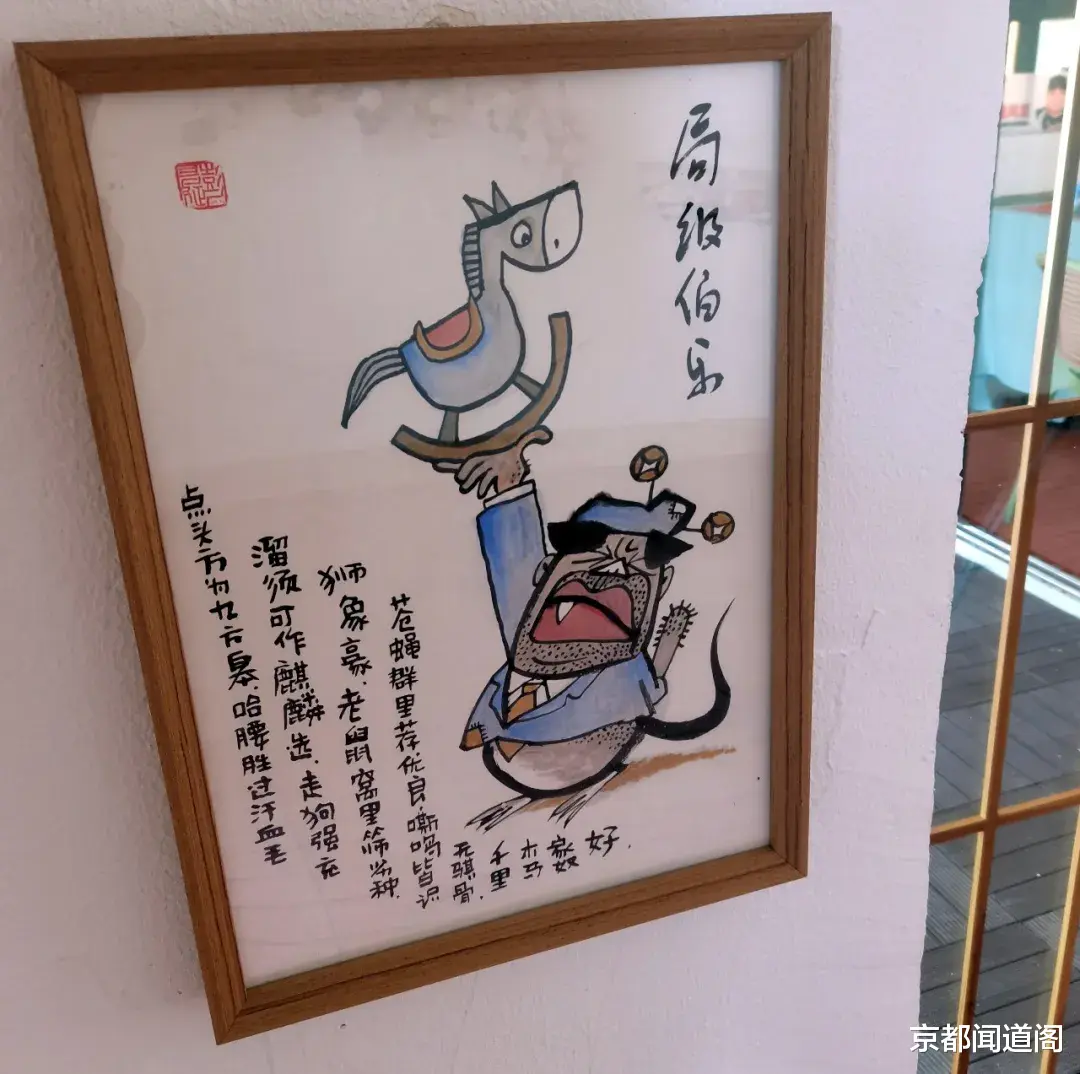 局级伯乐
点头方为九方皋.哈腰胜过汗血毛
溜须可作麒麟选.走狗强充
狮象豪.老鼠窝里筛种.
苍蝇群里荐优良嘶鸣皆识
无骐骨.
千里
木马
家奴
好.
京都闻道阁